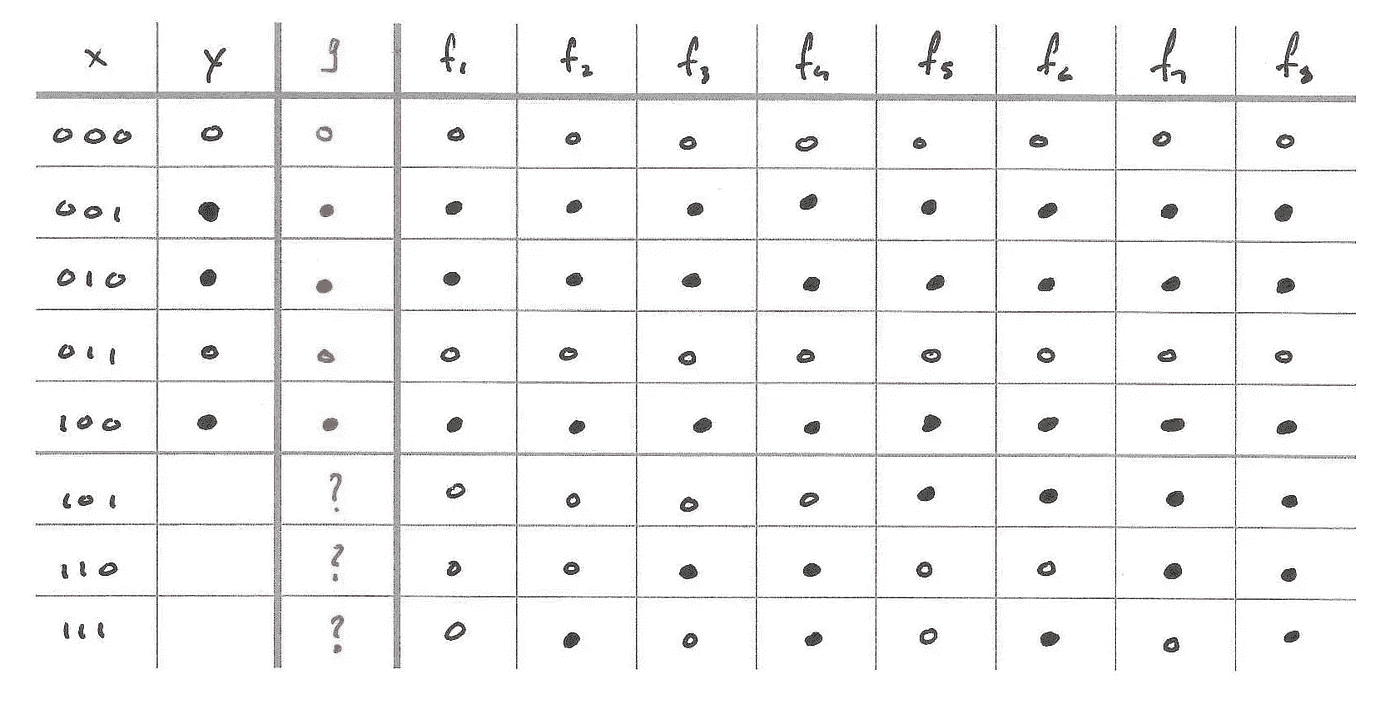 x y g f₁ f₂ f₃ f₄ f₅ f₆ f₇ f₈
000 ○ ○ ○ ○ ○ ○ ○ ○ ○ ○
001 ● ● ● ● ● ● ● ● ● ●
010 ● ● ● ● ● ● ● ● ● ●
011 ○ ○ ○ ○ ○ ○ ○ ○ ○ ○
100 ● ● ● ● ● ● ● ● ● ●
101 ? ○ ○ ○ ○ ● ● ● ●
110 ? ○ ○ ● ● ○ ○ ● ●
111 ? ○ ● ○ ● ○ ● ○ ●